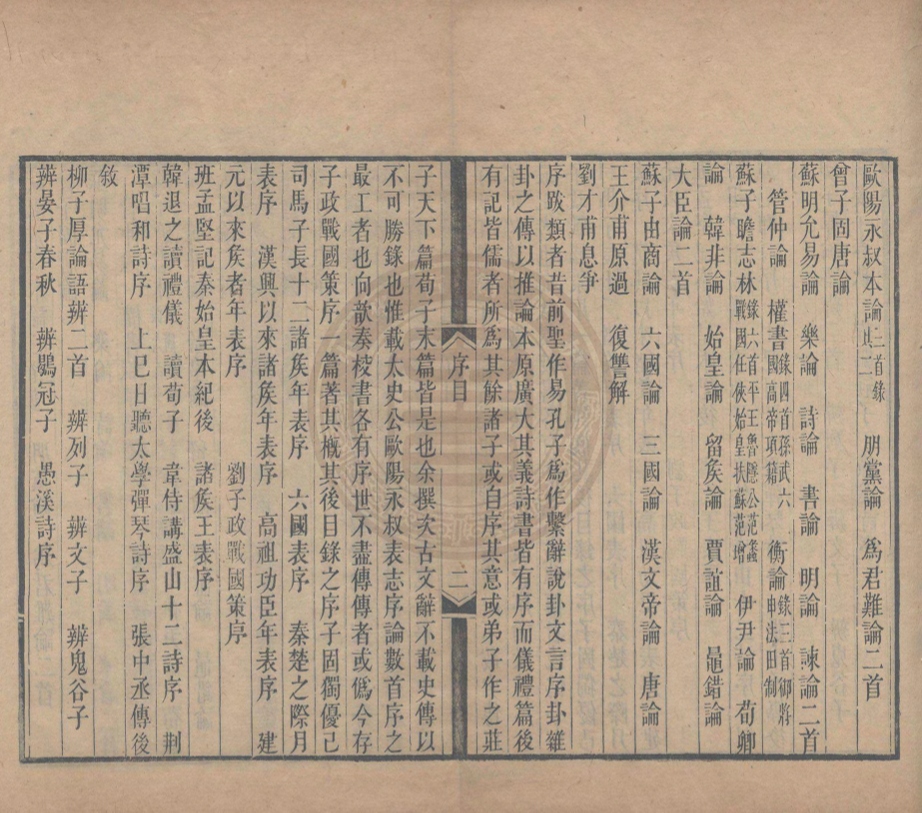 歐陽永叔本論三首錄此二 朋黨論 爲君難論二首
曾子固唐論
蘇明允易論 樂論 詩論 書論 明論 諫論二首
管仲論 權書錄四首孫武六國高帝項籍 衡論錄三首御將申法田制
蘇子瞻志林錄六首平王魯隱公范蠡戰國任俠始皇扶蘇范增 伊尹論 荀卿
論 韓非論 始皇論 留矦論 賈誼論 鼂錯論
大臣論二首
蘇子由商論 六國論 三國論 漢文帝論 唐論
王介甫原過 復讐解
劉才甫息爭
序跋類者昔前聖作易孔子爲作繫辭說卦文言序卦雜
卦之傳以推論本原廣大其義詩書皆有序而儀禮篇後
有記皆儒者所爲其餘諸子或自序其意或弟子作之莊
序目 二
子天下篇荀子末篇皆是也余撰次古文辭不載史傳以
不可勝錄也惟載太史公歐陽永叔表志序論數首序之
最工者也向歆奏校書各有序世不盡傳傳者或僞今存
子政戰國策序一篇著其槪其後目錄之序子固獨優已
司馬子長十二諸矦年表序 六國表序 秦楚之際月
表序 漢興以來諸矦年表序 高祖功臣年表序 建
元以來矦者年表序 劉子政戰國策序
班孟堅記秦始皇本紀後 諸矦王表序
韓退之讀禮儀 讀荀子 韋侍講盛山十二詩序 荆
潭唱和詩序 上巳日聽太學彈琴詩序 張中丞傳後
敘
柳子厚論語辨二首 辨列子 辨文子 辨鬼谷子
辨晏子春秋 辨鶡冠子 愚溪詩序